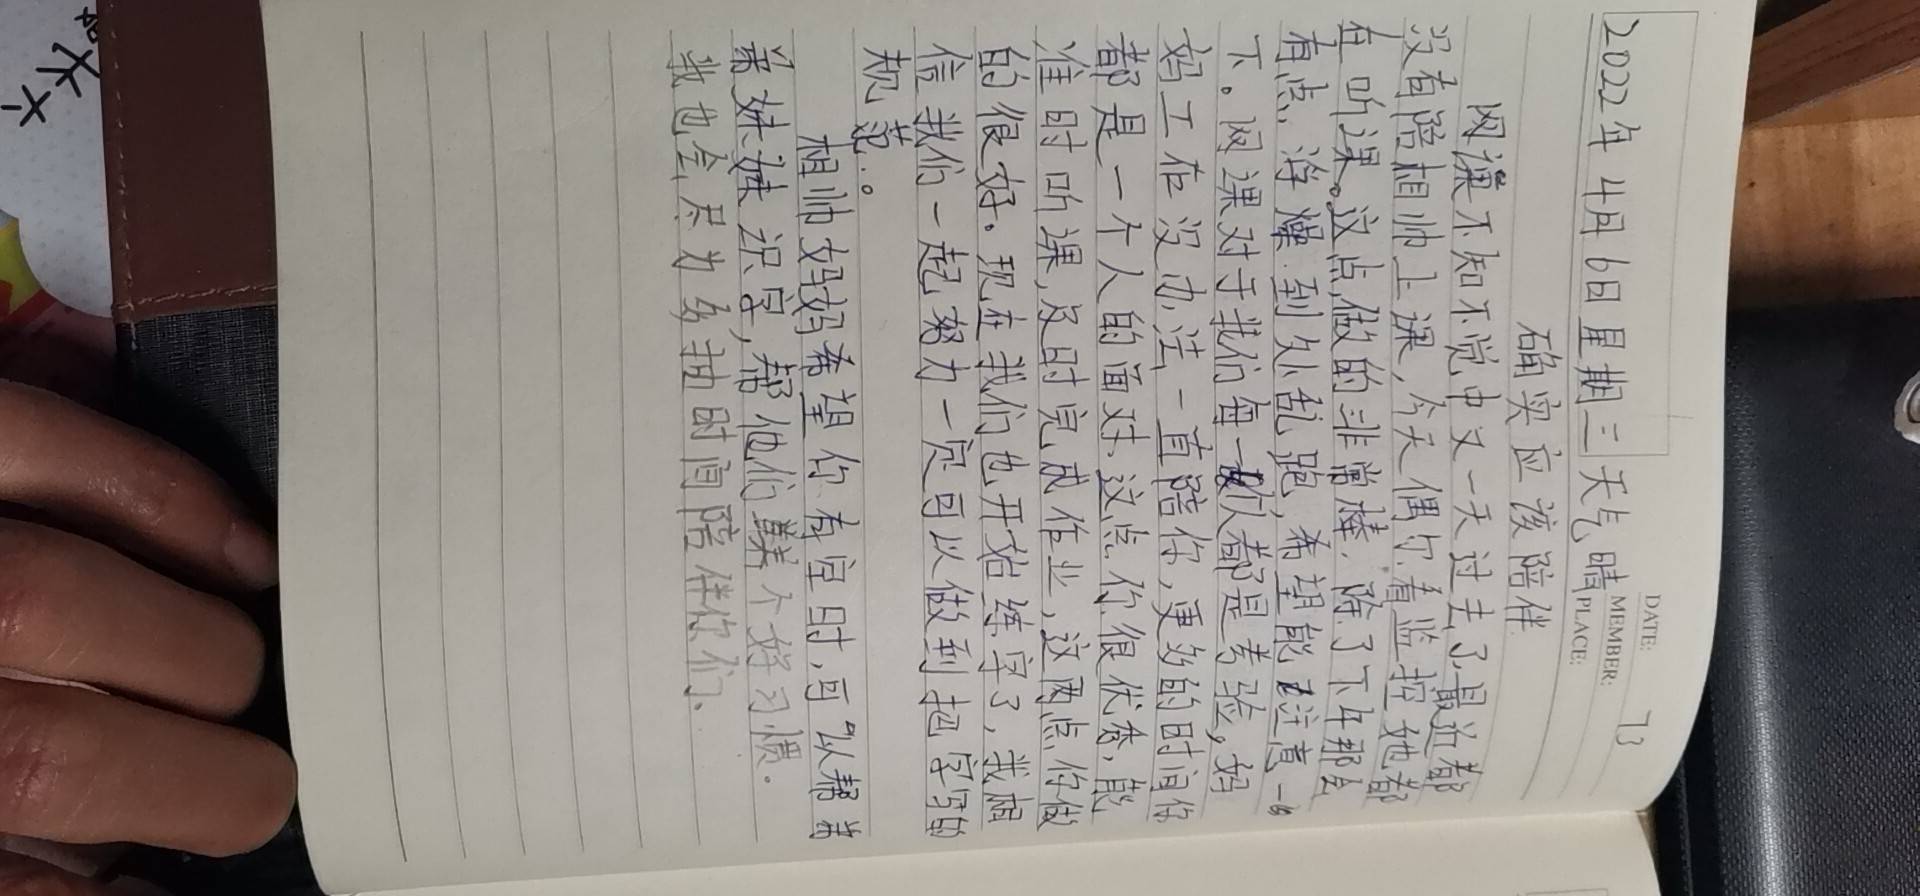 DATE: 73
MEMBER:
PLACE:
2022年4月6日星期三 天气晴
确实应该陪伴
网课不知不觉中又一天过去了,最近都
没有陪相帅上课,今天偶尔看监控她都
在听课。这点做的非常棒.除了下午那会
有点浮燥.到处乱跑,希望能注意一
下。网课对于我们每一个人都是考验,妈
妈工作没办法一直陪你,更多的时间你
都是一个人的面对.这点你很优秀,能
准时听课,及时完成作业,这两点你做
的很好。现在我们也开始练字了,我相
信我们一起努力一定可以做到把字写的
规范.。
相帅妈妈希望你有空时,可以帮弟
弟妹妹识字,帮他们养个好习惯.
我也会尽力多抽时间陪伴你们.